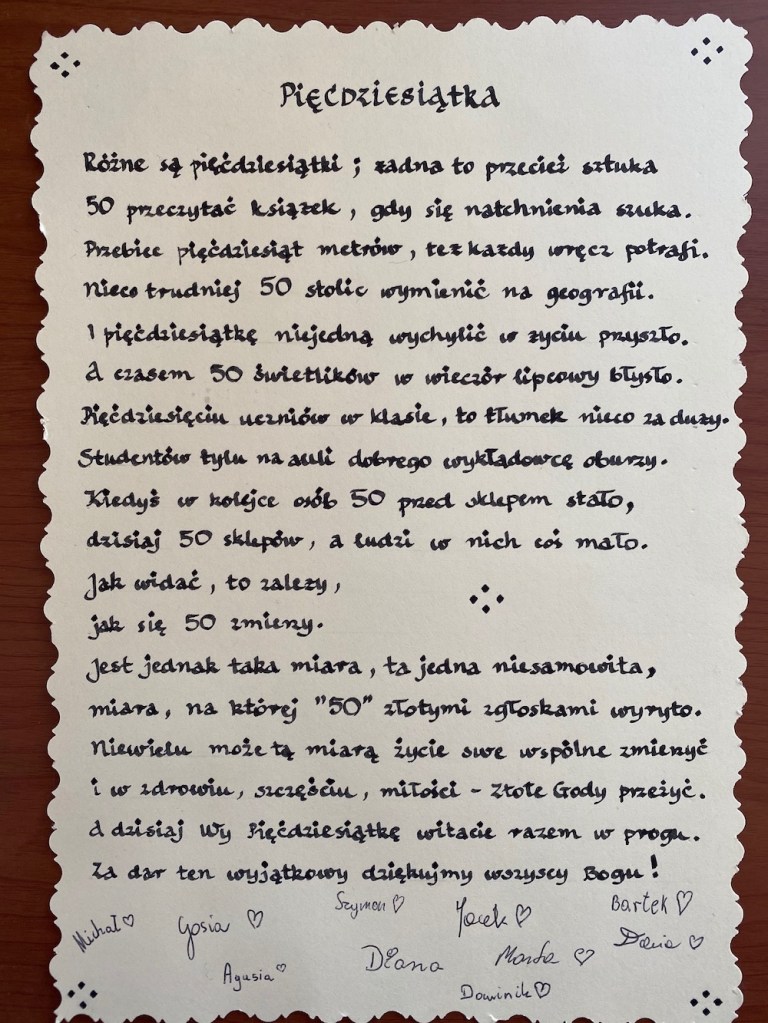 Pięćdziesiątka
Różne są pięćdziesiątki ; żadna to przecież sztuka
50 przeczytać książek , gdy się natchnienia szuka.
Przebiec pięćdziesiąt metrów , też każdy wręcz potrafi.
Nieco trudniej 50 stolic wymienić na geografii.
I pięćdziesiątkę niejedną wychylić w życiu przyszło.
A czasem 50 świetlików w wieczór lipcowy błysło.
Pięćdziesięciu uczniów w klasie , to tłumek nieco za duży.
Studentów tylu na auli dobrego wykładowcę oburzy.
Kiedyś w kolejce osób 50 przed sklepem stało,
dzisiaj 50 sklepów , a ludzi w nich coś mało.
Jak widać , to zależy ,
jak się 50 zmierzy.
Jest jednak taka miara , ta jedna niesamowita,
miara , na której "50" złotymi zgłoskami wyryto.
Niewielu może tą miarą życie swe wspólne zmierzyć
i w zdrowiu, szczęściu , miłości - Złote Gody przeżyć.
A dzisiaj Wy Pięćdziesiątkę witacie razem w progu.
Za dar ten wyjątkowy dziękujmy wszyscy Bogu!
Szymon Bartek
Michał Gosia Jacek
Daria
Agusia Diana Marta
Dominik